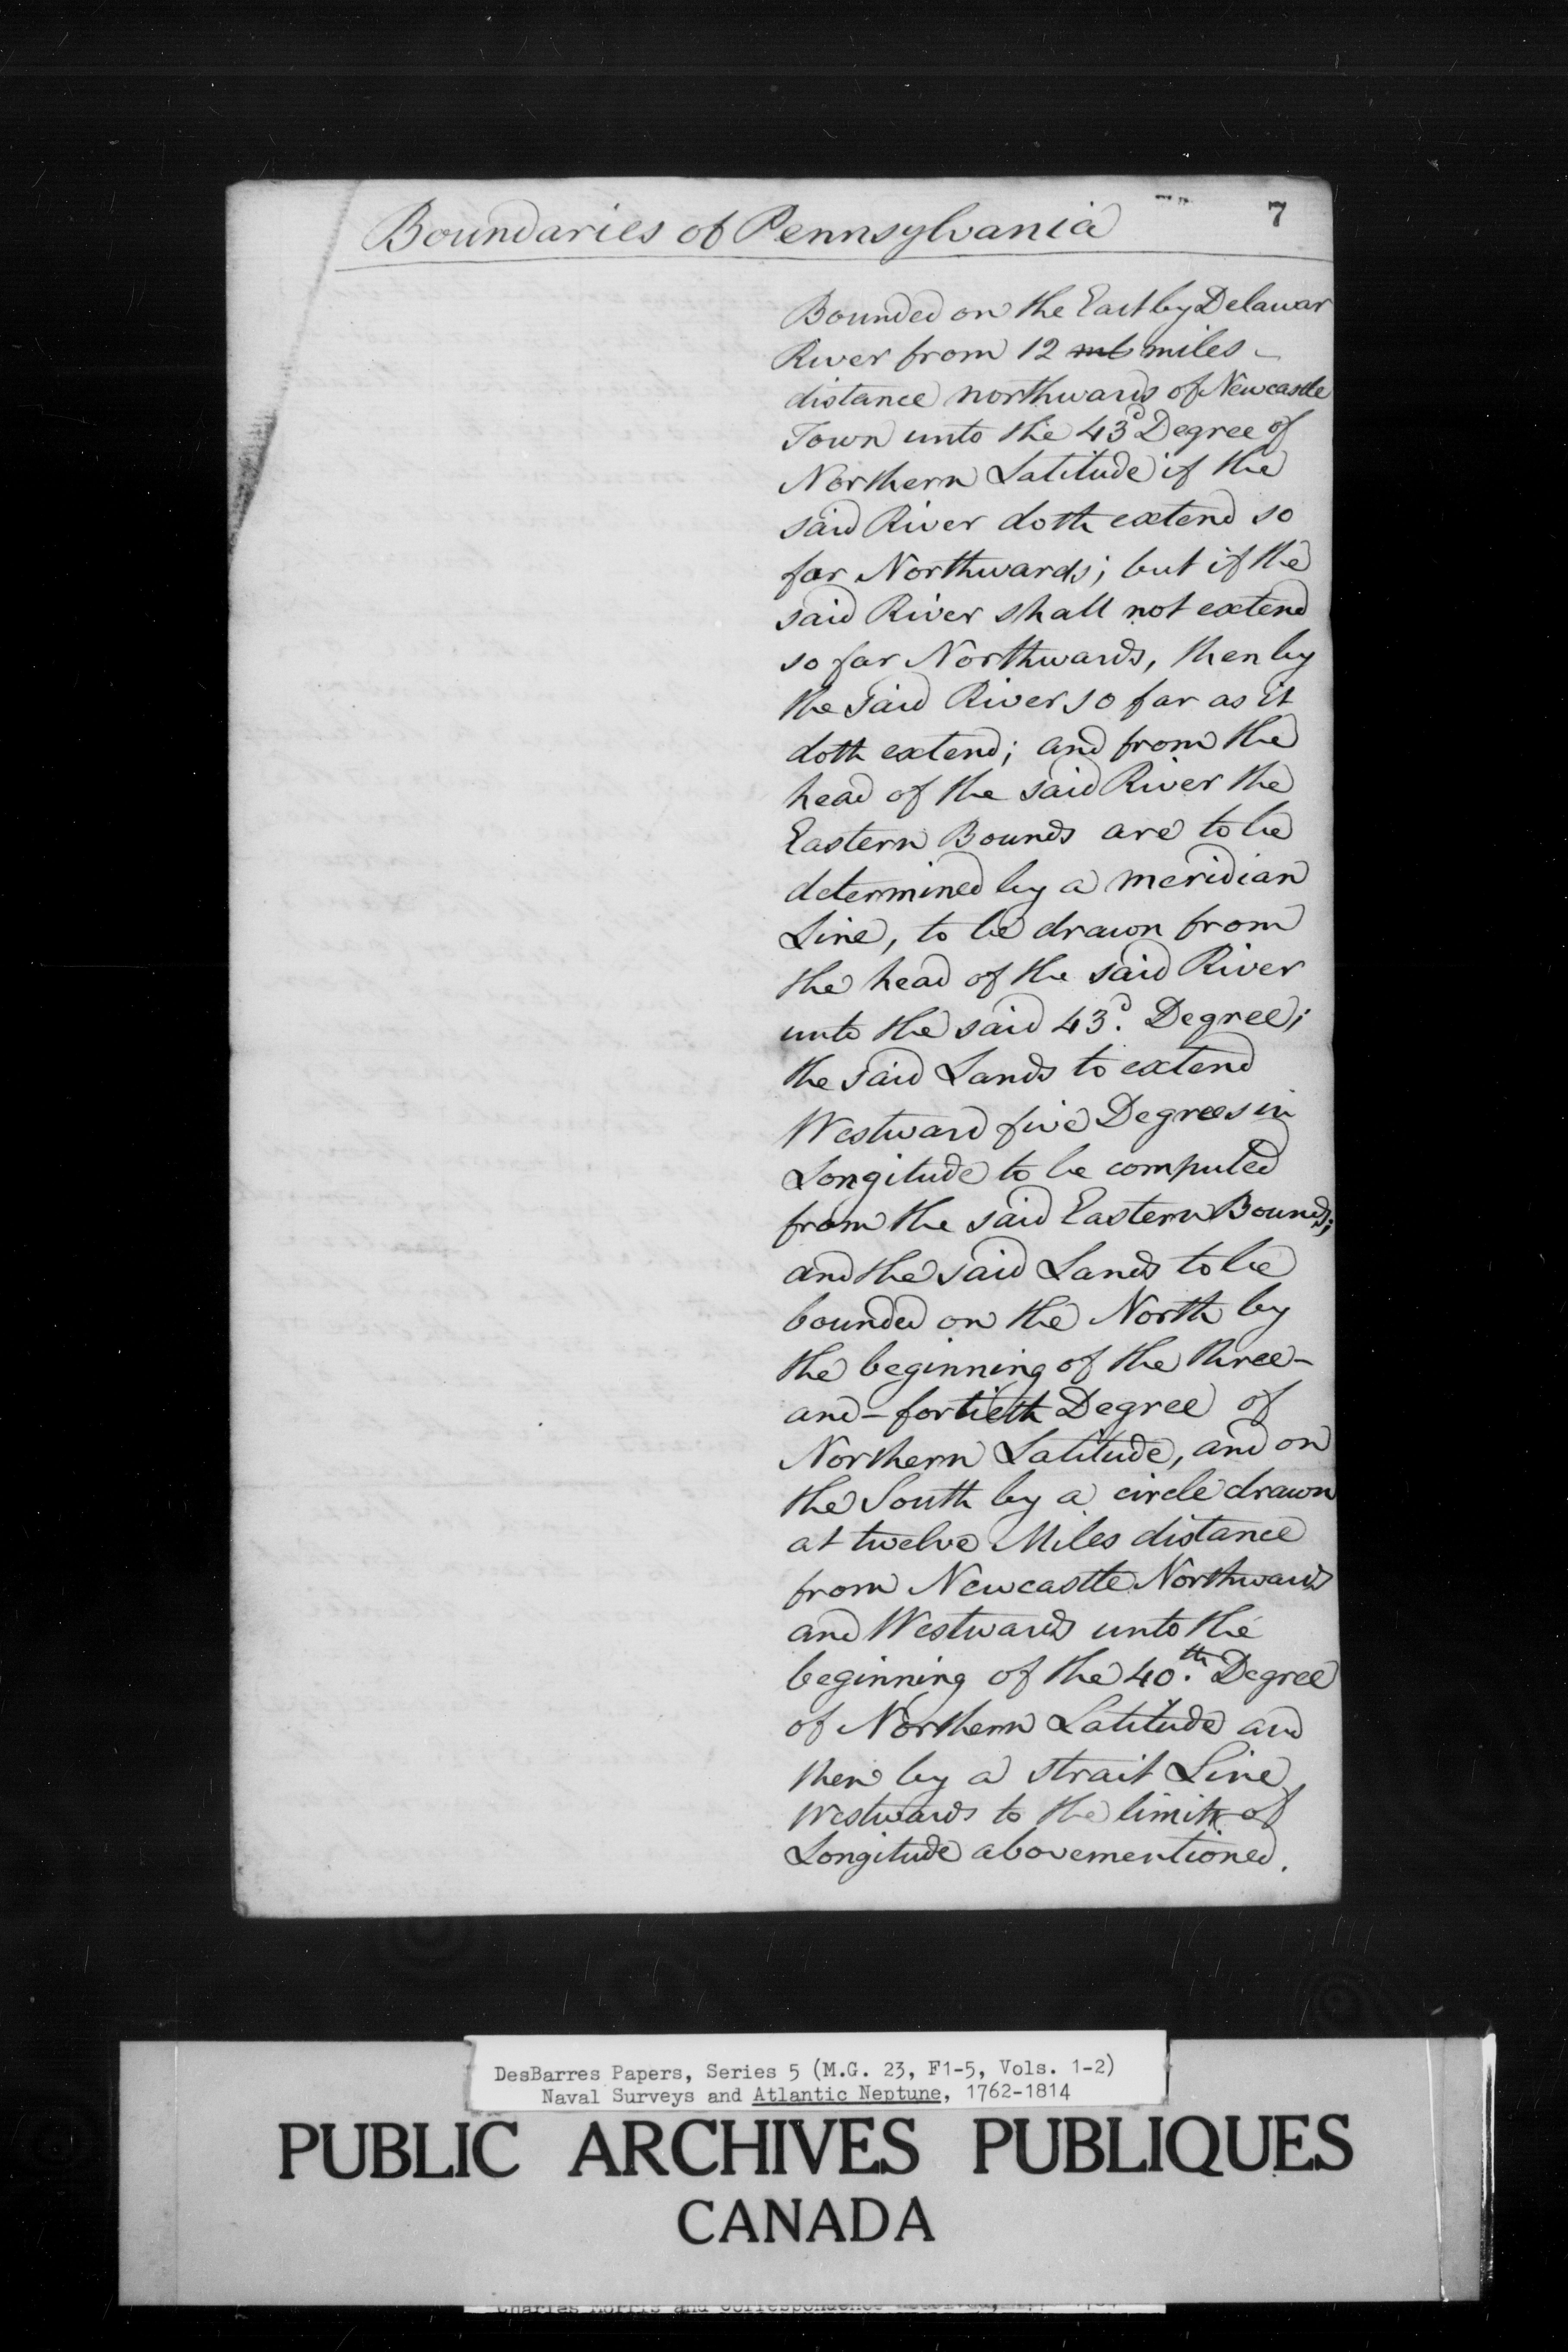 7
Boundaries of Pennsylvania
Bounded on the East by Delawar
River from 12 ml miles -
distance northwards of Newcastle
Town unto the 43d Degree of
Northern Latitude if the
said River doth extend so
far Northwards; but if the
said River shall not extend
so far Northwards, then by
the said River so far as it
doth extend; and from the
head of the said River the
Eastern Bounds are to be
determined by a meridian
Line, to be drawn from
the head of the said River
unto the said 43d. Degree;
the said Lands to extend
Westward five Degrees in
Longitude to be computed
from the said Eastern Bounds;
and the said Lands to be
bounded on the North by
the beginning of the three-
and-fortieth Degree of
Northern Latitude, and on
the South by a circle drawn
at twelve Miles distance
from Newcastle Northwards
and Westwards unto the
beginning of the 40.th Degree
of Northern Latitude and
then by a strait Line
Westwards to the limits of
Longitude abovementioned.
DesBarres Papers, Series 5 (M.G. 23, F1-5, Vols. 1-2)
Naval Surveys and Atlantic Neptune, 1762-1814
PUBLIC ARCHIVES PUBLIQUES
CANADA
Charles Morris and Correspondence